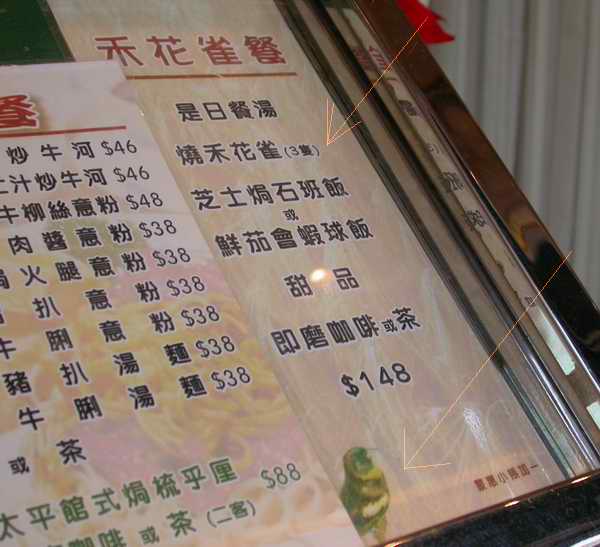 禾花雀餐
是日餐湯
燒禾花雀(3隻)
芝士焗石班飯
或
鮮茄會蝦球飯
甜品
即磨咖啡或茶
$148
餐
炒牛河 $46
汁炒牛河 $46
牛柳絲意粉 $48
肉醬意粉 $38
焗火腿意粉 $38
扒意粉 $38
牛脷意粉 $38
豬扒湯麵 $38
牛脷湯麵 $38
或茶
太平館式焗梳乎厘 $88
咖啡或茶(二客)